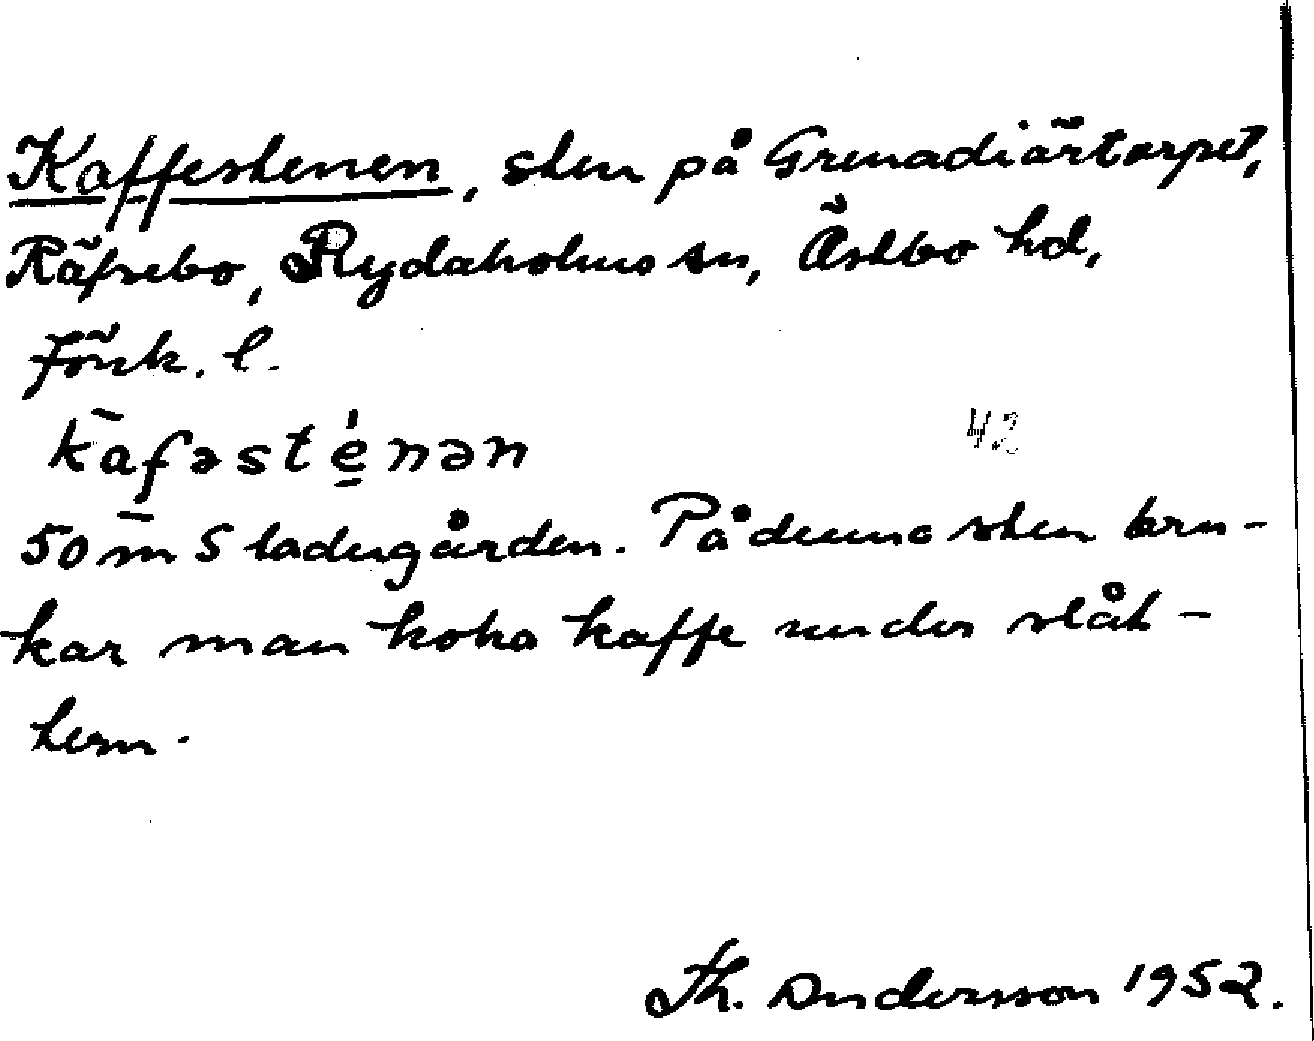 Kaffestenen, sten på Grenadiärtorpet,
Räfsebo, Rydaholms sn, Östbo hd,
Jönk. l.
k̄afəsté̱nən 42
50 m S ladugården. På denna sten bru-
kar man koka kaffe under slåt-
tern.
Th. Andersson 1952.